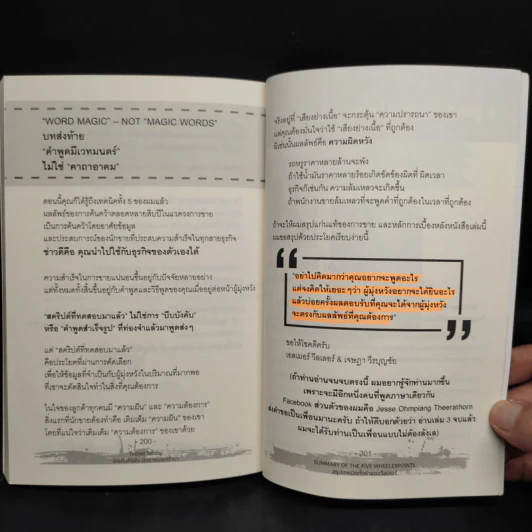 "WORD MAGIC" – NOT "MAGIC WORDS"
บทส่งท้าย
"คำพูดมีเวทมนตร์"
ไม่ใช่ "คาถาอาคม"
ตอนนี้คุณก็ได้รู้ถึงเทคนิคทั้ง 5 ของผมแล้ว
ผลลัพธ์ของการค้นคว้าตลอดหลายสิบปีในแวดวงการขาย
เป็นการค้นคว้าโดยอาศัยข้อมูล
และประสบการณ์ของนักขายที่ประสบความสำเร็จในทุกสายธุรกิจ
ข่าวดีคือ คุณนำไปใช้กับธุรกิจของตัวเองได้
ความสำเร็จในการขายแน่นอนขึ้นอยู่กับปัจจัยหลายอย่าง
แต่ทั้งหมดทั้งสิ้นขึ้นอยู่กับคำพูดและวิธีพูดของคุณเมื่ออยู่ต่อหน้าผู้มุ่งหวัง
"สคริปต์ที่ทดสอบมาแล้ว" ไม่ใช่การ "บีบบังคับ"
หรือ "คำพูดสำเร็จรูป" ที่ท่องจำแล้วมาพูดส่งๆ
แต่ "สคริปต์ที่ทดสอบมาแล้ว"
คือประโยคที่ผ่านการคัดเลือก
เพื่อให้ข้อมูลที่จำเป็นกับผู้มุ่งหวังในปริมาณที่มากพอ
ที่เขาจะตัดสินใจทำในสิ่งที่คุณต้องการ
ในใจของลูกค้าทุกคนมี "ความฝัน" และ "ความต้องการ"
สิ่งแรกที่นักขายต้องทำคือ เติมเต็ม "ความฝัน" ของเขา
โดยที่แน่ใจว่าเติมเต็ม "ความต้องการ" ของเขาด้วย
- 200 -
Tested Selling
จริงอยู่ที่ "เสียงย่างเนื้อ" จะกระตุ้น "ความปรารถนา" ของเขา
แต่คุณต้องมั่นใจว่าใช้ "เสียงย่างเนื้อ" ที่ถูกต้อง
มิเช่นนั้นผลลัพธ์คือ ความผิดหวัง
รถหรูราคาหลายล้านจะพัง
ถ้าใช้น้ำมันราคาหลายร้อยเกิดขัดข้องผิดที่ ผิดเวลา
ธุรกิจก็เช่นกัน ความล้มเหลวจะเกิดขึ้น
ถ้าพนักงานขายล้มเหลวที่จะพูดคำที่ถูกต้องในเวลาที่ถูกต้อง
ถ้าจะให้ผมสรุปแก่นแท้ของการขาย และหลักการเบื้องหลังหนังสือเล่มนี้
ผมขอสรุปด้วยประโยคเรียบง่ายนี้
"อย่าไปคิดมากว่าคุณอยากจะพูดอะไร
แต่จงคิดให้เยอะๆว่า ผู้มุ่งหวังอยากจะได้ยินอะไร
แล้วบ่อยครั้งผลตอบรับที่คุณจะได้จากผู้มุ่งหวัง
จะตรงกับผลลัพธ์ที่คุณต้องการ"
ขอให้โชคดีครับ
เอลเมอร์ วีลเลอร์ & เจษฎา วีรบุญชัย
(ถ้าท่านอ่านจนจบตรงนี้ ผมอยากรู้จักท่านมากขึ้น
เพราะจะมีอีกหนึ่งคนที่พูดภาษาเดียวกัน
Facebook ส่วนตัวของผมคือ Jesse Ohmpiang Theerathorn
ส่งคำขอเป็นเพื่อนมานะครับ ถ้าให้ดีบอกด้วยว่า อ่านเล่ม 3 จบแล้ว
ผมจะได้รับท่านเป็นเพื่อนแบบไม่ต้องลังเล)
- 201 -
SUMMARY OF THE FIVE WHEELERPOINTS